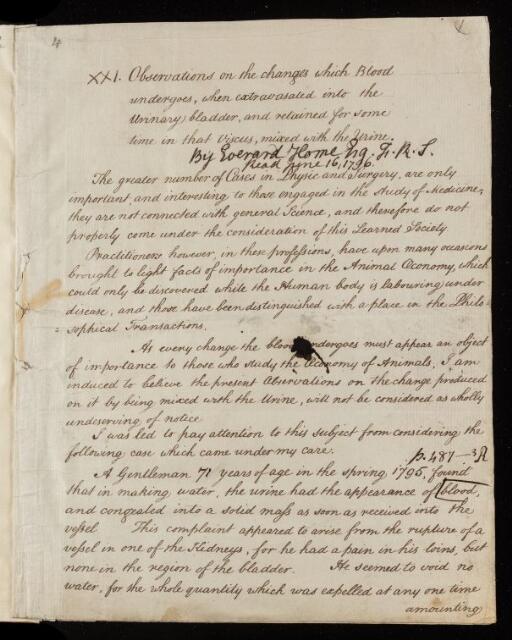 4
1
XXI. Observations on the changes which Blood
undergoes, when extravasated into the
Urinary bladder, and retained for some
time in that Viscus, mixed with the Urine.
By Everard Home Esq. F. R. S.
Read June 16, 1796.
The greater number of Cases in Physic and Surgery, are only
important and interesting to those engaged in the Study of Medicine,
they are not connected with general Science, and therefore do not
properly come under the consideration of this Learned Society
Practitioners however, in these professions, have upon many occasions
brought to light facts of importance in the Animal Œconomy, which
could only be discovered while the Human body is labouring under
disease, and those have been distinguished with a place in the Philo
= sophical Transactions.
As every change the blood undergoes must appear an object
of importance to those who study the Œconomy of Animals, I am
induced to believe the present Observations on the change produced
on it by being mixed with the Urine, will not be considered as wholly
undeserving of notice
I was led to pay attention to this subject from considering the
following case which came under my care.
p. 487—3R
A Gentleman 71 years of age in the spring 1795, found
that in making water, the urine had the appearance of blood,
and congealed into a solid mass as soon as received into the
vessel This complaint appeared to arise from the rupture of a
vessel in one of the Kidneys, for he had a pain in his loins, but
none in the region of the bladder. He seemed to void no
water, for the whole quantity which was expelled at any one time
amounting